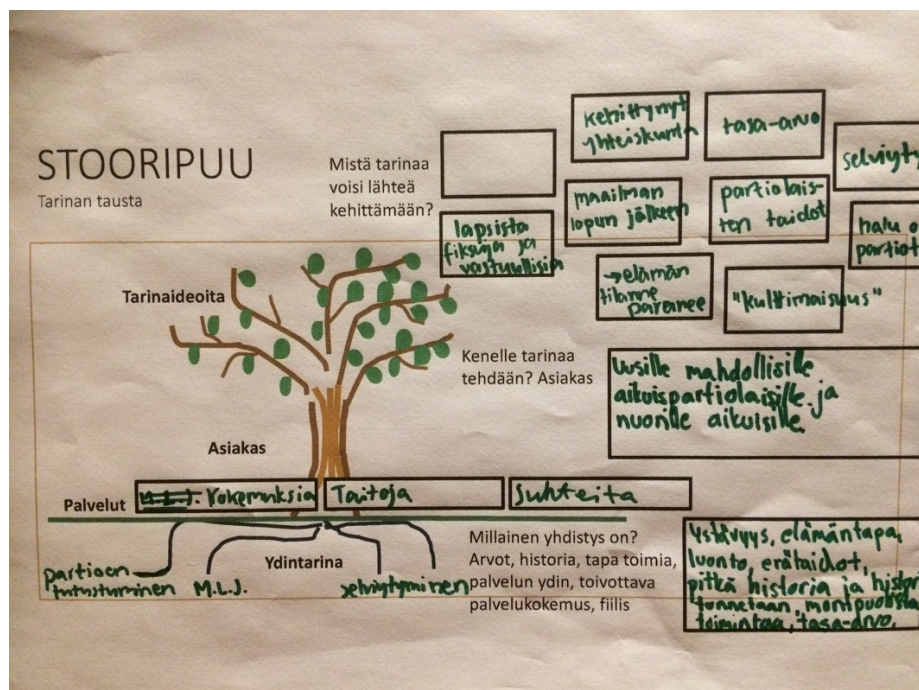 STOORIPUU
Tarinan tausta
Mistä tarinaa
voisi lähteä
kehittämään?
kehittynyt
yhteiskunta
tasa-arvo
selviyty
maailman
lopun jälkeen
partiolais-
ten taidot
halu o
partiol
lapsista
fiksuja ja
vastuullisia
→elämän
tilanne
paranee
"kulttimaisuus"
Tarinaideoita
Kenelle tarinaa
tehdään? Asiakas
Uusille mahdollisille
aikuispartiolaisille ja
nuorille aikuisille
Asiakas
Palvelut
M.L.J. Kokemuksia
Taitoja
Suhteita
Ydintarina
partioon
tutustuminen
M.L.J.
selviytyminen
Millainen yhdistys on?
Arvot, historia, tapa toimia,
palvelun ydin, toivottava
palvelukokemus, fiilis
Ystävyys, elämäntapa,
luonto, erätaidot,
pitkä historia ja histori
tunnetaan, monipuolista
toimintaa, tasa-arvo.